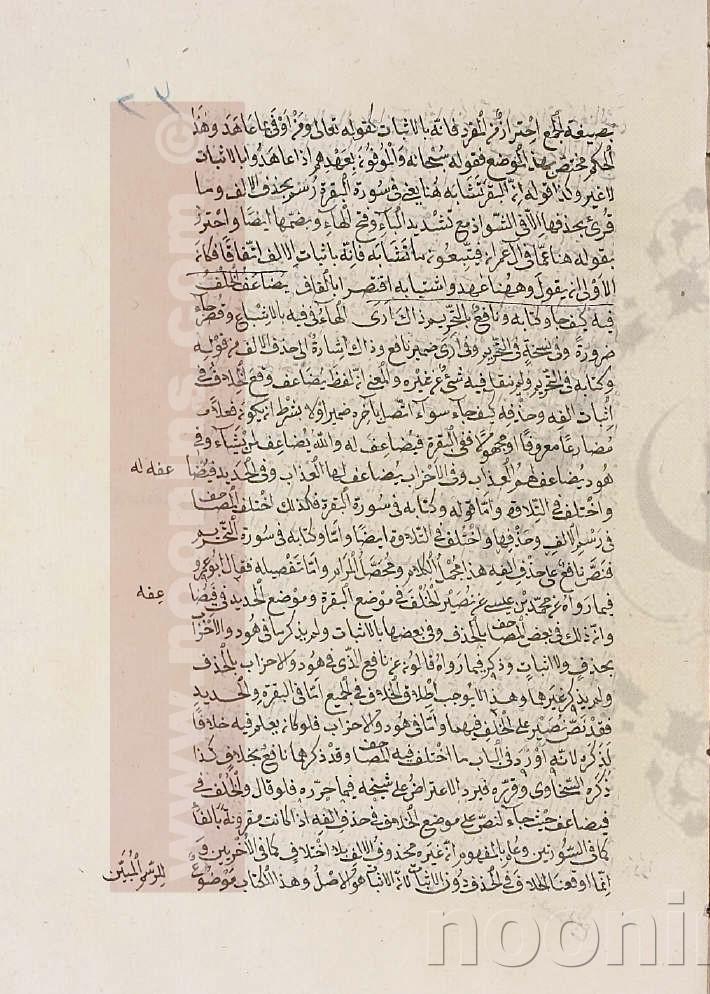 بصيغة الجمع احتراز من المفرد فانه بالاثبات كقوله تعالى ومن اوفى بما عاهد وهذا
الحكم مختص بهذا الموضع فقوله سبحانه والموفون بعهدهم اذا عاهدوا بالاثبات
لا غير وكذا قوله ان البقر تشابه هنا يعني في سورة البقرة رسم بحذف الالف وما
قرئ بحذفها الا في الشواذ مع تشديد الباء وفتح الهاء وبضمها ايضا واحترز
بقوله هنا عما في آل عمران فيتبعون ما تشابه فانه باثبات الالف اتفاقا فكان
الاولى ان يقول وههنا عاهدوا تشابه اقتصرا بالفاف يضاعف الخلف
فيه كيف جا وكتابه ونافع بالتحريم ذاك ارى الهاء في فيه بالاشباع وقصر جاء
ضرورة وفي نسخة في التحريم وفي ارى ضمير نافع وذاك اشارة الى حذف الالف من قوله
وكتابه في التحريم ولم ينقل فيه شئ عن غيره والمعنى ان لفظ يضاعف وقع الخلاف في
اثبات الفه وحذفه كيف جاء سواء اتصل بآخره ضمير اولا بشرط ان يكون فعلا
مضارعا معروفا او مجهولا ففي البقرة فيضاعفه له والله يضاعف لمن يشاء وفي
هود يضاعف لهم العذاب وفي الاحزاب يضاعف لها العذاب وفي الحديد فيضا عفه له
واختلف في التلاوة واما قوله وكتابه في سورة البقرة فكذلك اختلف المصاحف
في رسم الالف وحذفها واختلف في التلاوة ايضا واما وكتابه في سورة التحريم
فنص نافع على حذف الفه هذا مجمل الكلام ومحصل المرام واما تفصيله فقال ابو عمرو
فيما رواه عن محمد بن عيسى عن نصير الخلف في موضع البقرة وموضع الحديد في فيضا عفه
وان ذلك في بعض المصاحف بالحذف وفي بعضها بالاثبات ولم يذكر ما في هود والاحزاب
بحذف ولا اثبات وذكر فيما رواه قالون عن نافع الذي في هود والاحزاب بالحذف
ولم يذكر غيرهما وهذا لا يوجب اطلاق الخلاف في الجميع اما في البقرة والحديد
فقد نص نصير على الخلف فيهما واما في هود والاحزاب فلو كان يعلم فيه خلافا
لذكره لانه اورد في الباب ما اختلف فيه المصاحف وقد ذكرهما نافع بخلاف كذا
ذكره السخاوي وقرره فيرد الاعتراض على شيخه فيما حرره فلو قال والخلف في
فيضاعف حيث جاء لنص على موضع الخلاف في حذف الفه اذا كانت مقرونة بالفا
كما في السورتين وعلم بالمفهوم ان غيره محذوف الالف بلا اختلاف كما في الاخريين و
انما اوقعنا الخلاف في الحذف دون الاثبات لان الاثبات هو الاصل وهذا الكتاب موضوع للرسم المبين
www.noonins.com
noonin